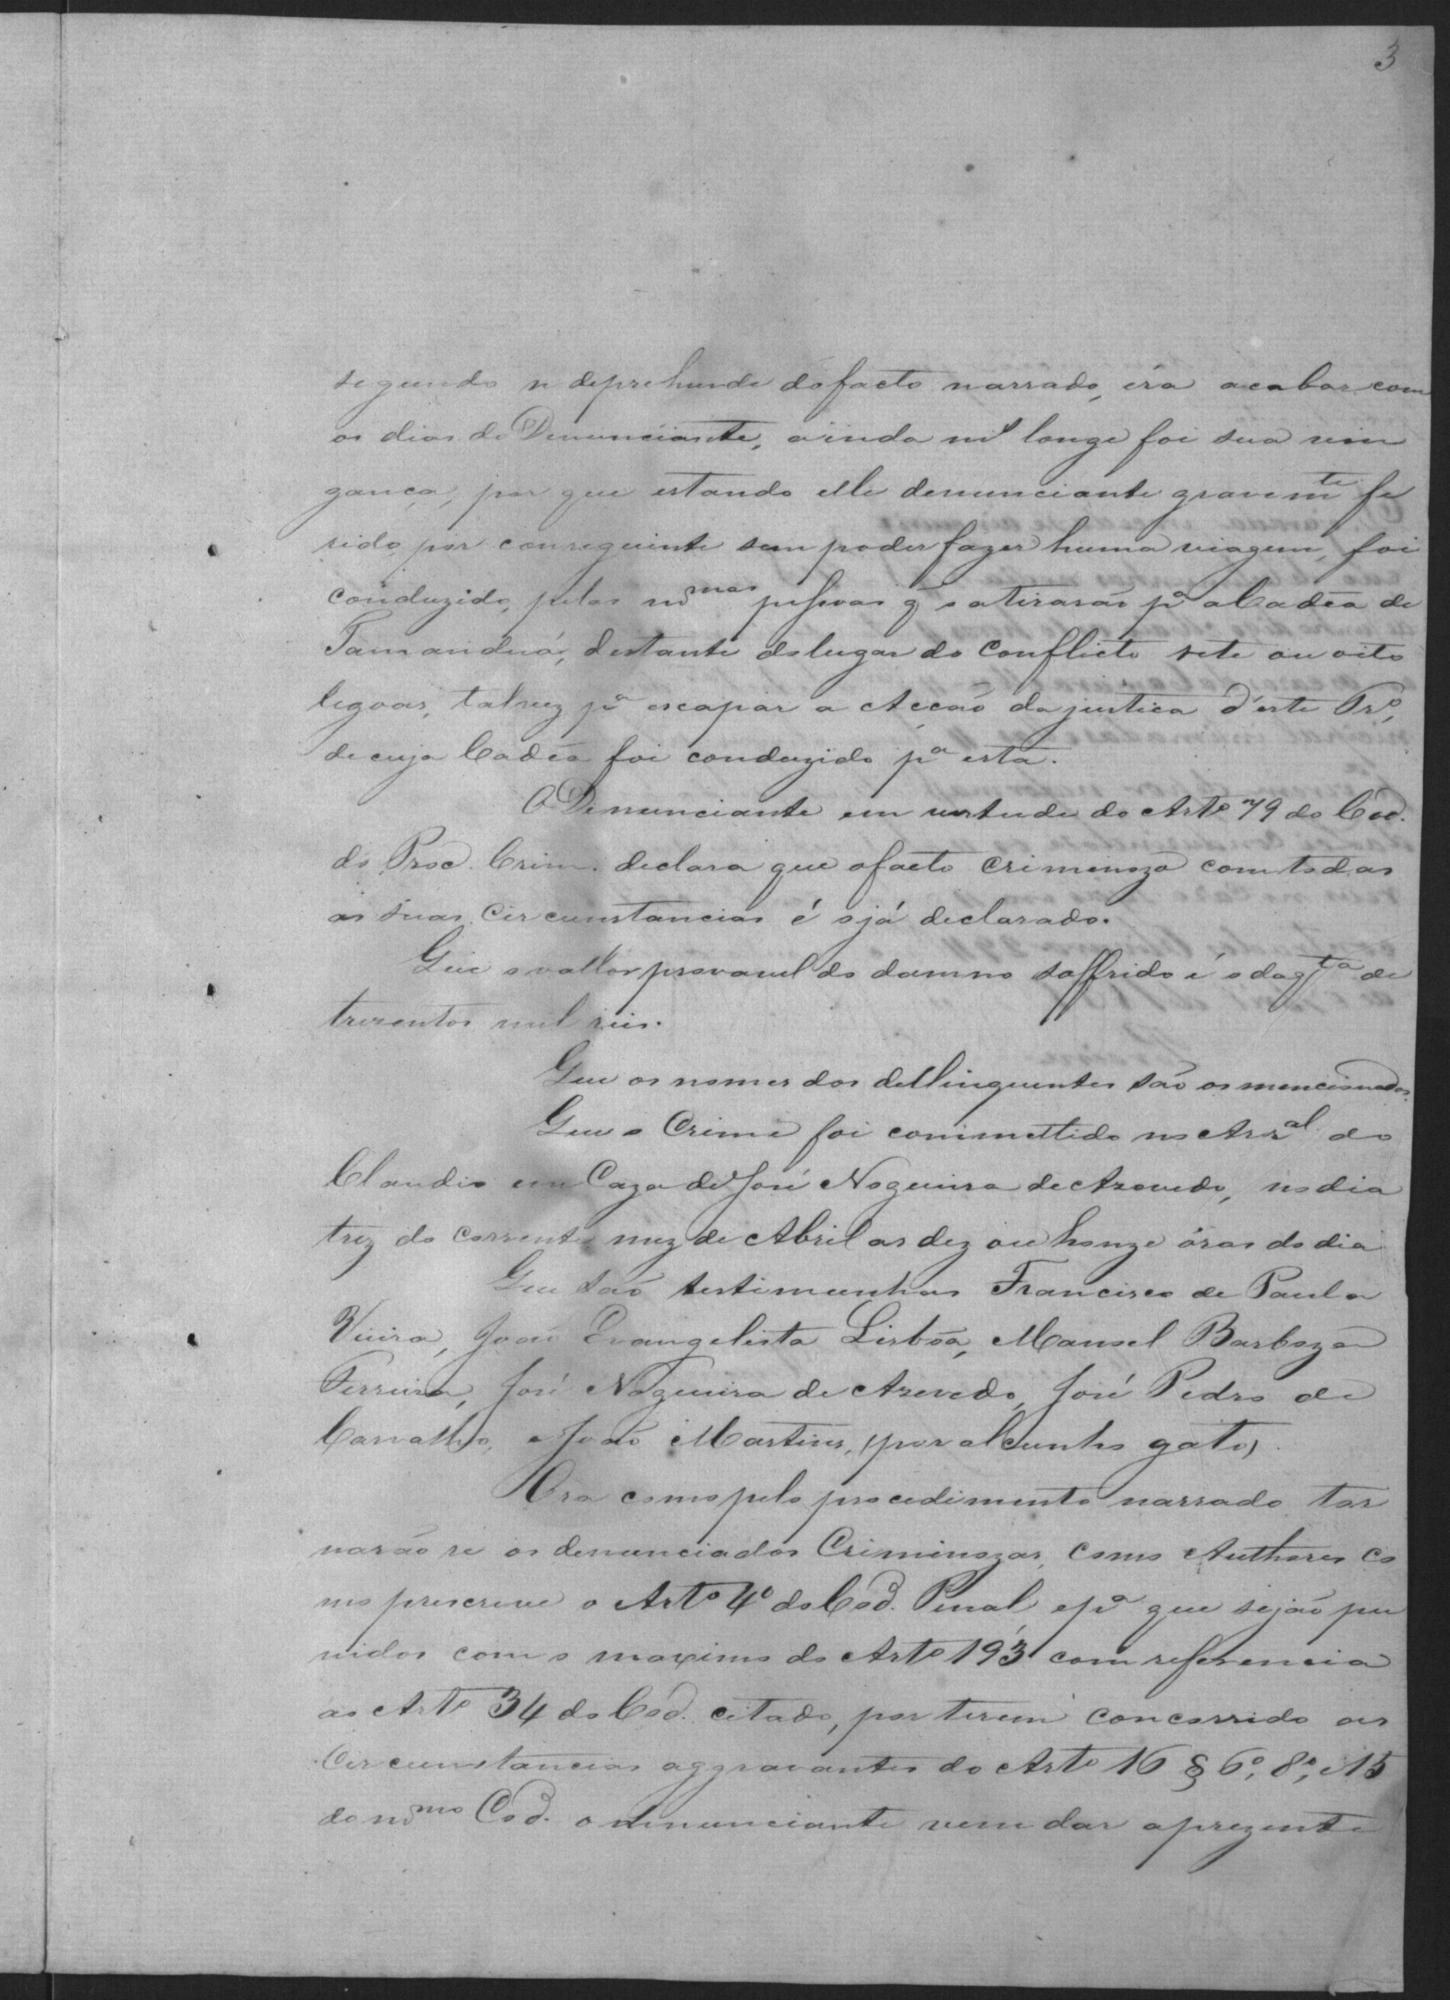 3
segundo se deprehende do facto narrado, éra acabar com
os dias do Denunciante, ainda mto longe foi sua vin
gança, por que estando elle denunciante gravemte fe
rido, por conseguinte sem poder fazer huma viagem, foi
conduzido, pelas mmas pessoas q̃ o atirarão pa a Cadêa de
Tamanduá, destante do lugar do conflicto sete ou oito
legoas, talvez pa escapar a Acção da justica d'este Tro,
de cuja Cadêa foi conduzido pa esta.
O Denunciante em vertude do Arto 79 do Cod.
do Proc. Crim. declara que o facto crimenozo com todas
as suas Circunstancias é o já declarado.
Que o vallor provavel do damno soffrido é o da qta de
trezentos mil reis.
Que os nomes dos dellinquentes são os mencionados.
Que o Crime foi commettido no Arral do
Claudio em Caza de José Nogueira de Azevedo, no dia
trez do corrente mez de Abril as dez ou honze óras do dia
Que são testimunhas Francisco de Paula
Vieira, João Evangelista Lisbôa, Manoel Barboza
Ferreira, José Nogueira de Azevedo, José Pedro de
Carvalho, e João Martins, (por alcunha gato).
Ora como pelo procedimento narrado tor
narão se os denunciados Criminozos, como Authores co
mo prescreve o Arto 4º do Cod. Penal, e pa que sejão pu
nidos com o maximo do Arto 193 com referencia
ao Arto 34 do Cod. citado, por terem concorrido as
Circunstancias aggravantes do Arto 16 § 6º, 8º, e 15
do mmo Cod. o denunciante vem dar a prezente